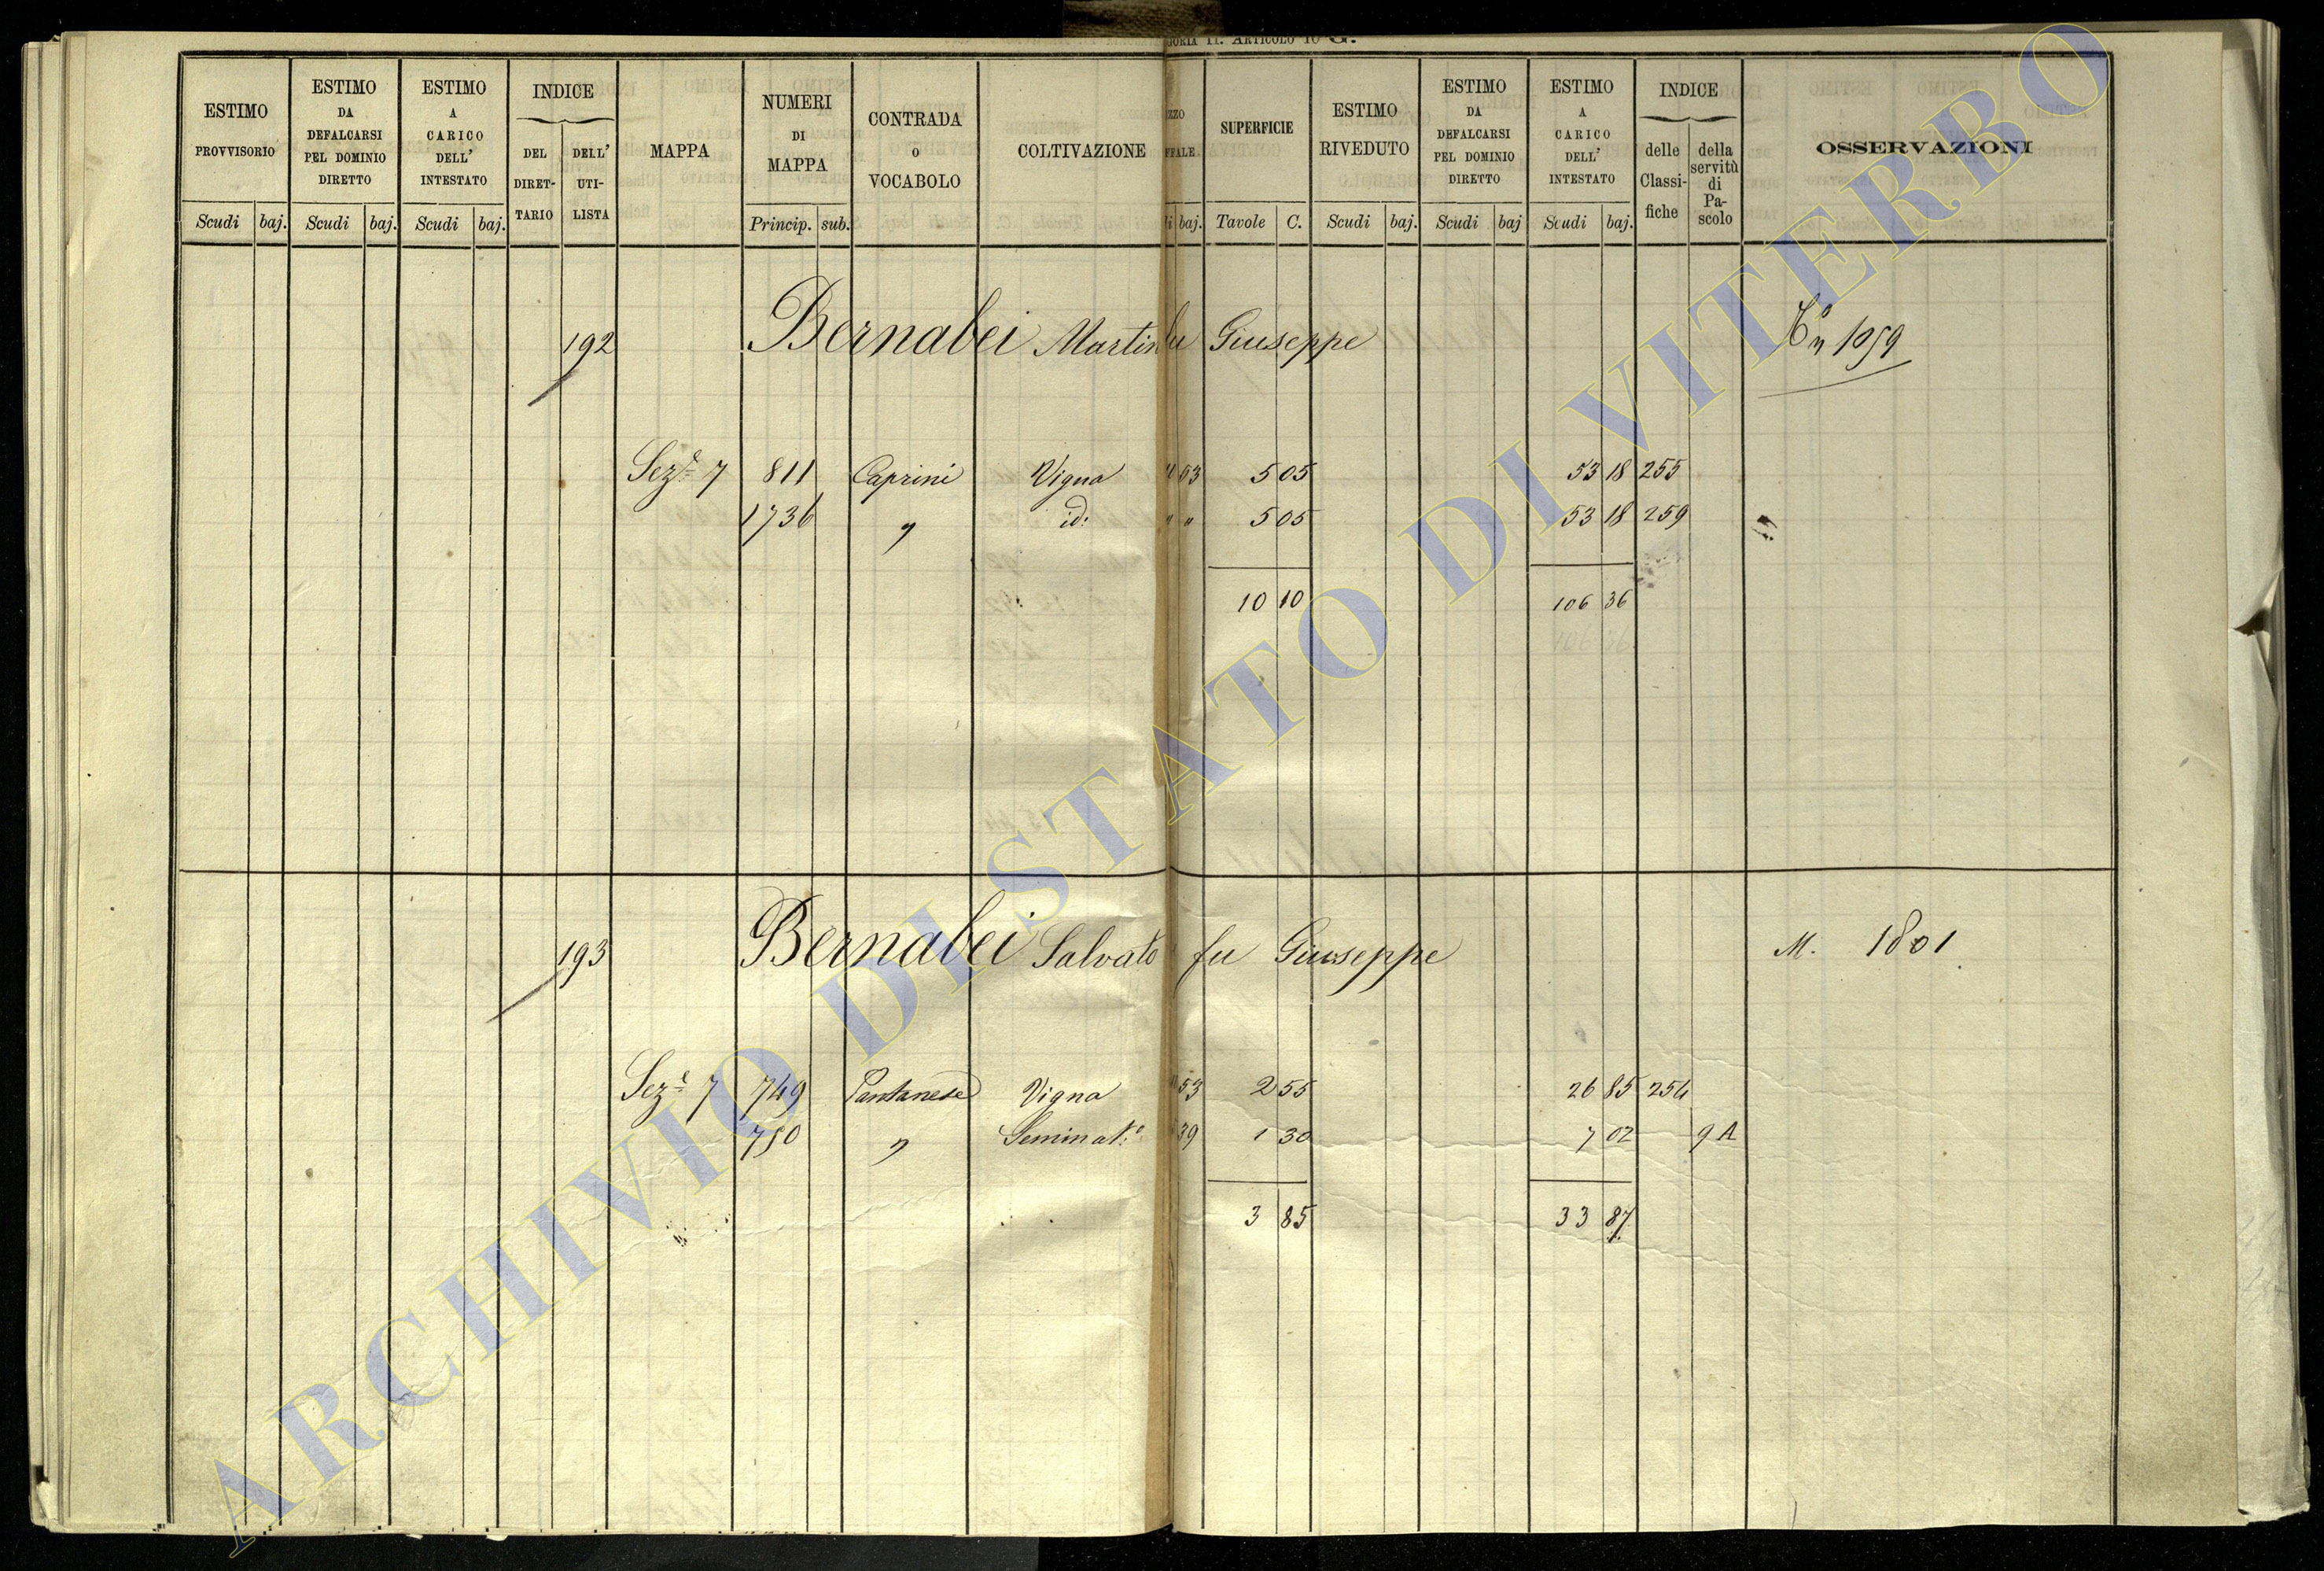 ARTICOLO 10 G.
ESTIMO PROVVISORIO
Scudi baj.
ESTIMO DA DEFALCARSI PEL DOMINIO DIRETTO
Scudi baj.
ESTIMO A CARICO DELL' INTESTATO
Scudi baj.
INDICE
DEL DIRET-TARIO
DELL' UTI-LISTA
MAPPA
NUMERI DI MAPPA
Princip. sub.
CONTRADA O VOCABOLO
COLTIVAZIONE
baj.
SUPERFICIE
Tavole C.
ESTIMO RIVEDUTO
Scudi baj.
ESTIMO DA DEFALCARSI PEL DOMINIO DIRETTO
Scudi baj
ESTIMO A CARICO DELL' INTESTATO
Scudi baj.
INDICE
delle Classi-fiche
della servitù di Pa-scolo
OSSERVAZIONI
192 Bernabei Martin fu Giuseppe 1059
Sez.e 7 811 Caprini Vigna 5 05 53 18 255
1736 " id: " " 5 05 53 18 259
10 10 106 36
106 36
193 Bernabei Salvato fu Giuseppe M. 1801
Sez.e 7 749 Pantanese Vigna 53 2 55 26 85 254
750 " Seminat.o 39 1 30 7 02 9 A
3 85 33 87
ARCHIVIO DI STATO DI VITERBO